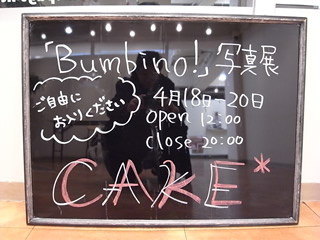 「Bumbino!」写真展
ご自由に
お入りください
4月18日-20日
open 12:00
close 20:00
CAKE*